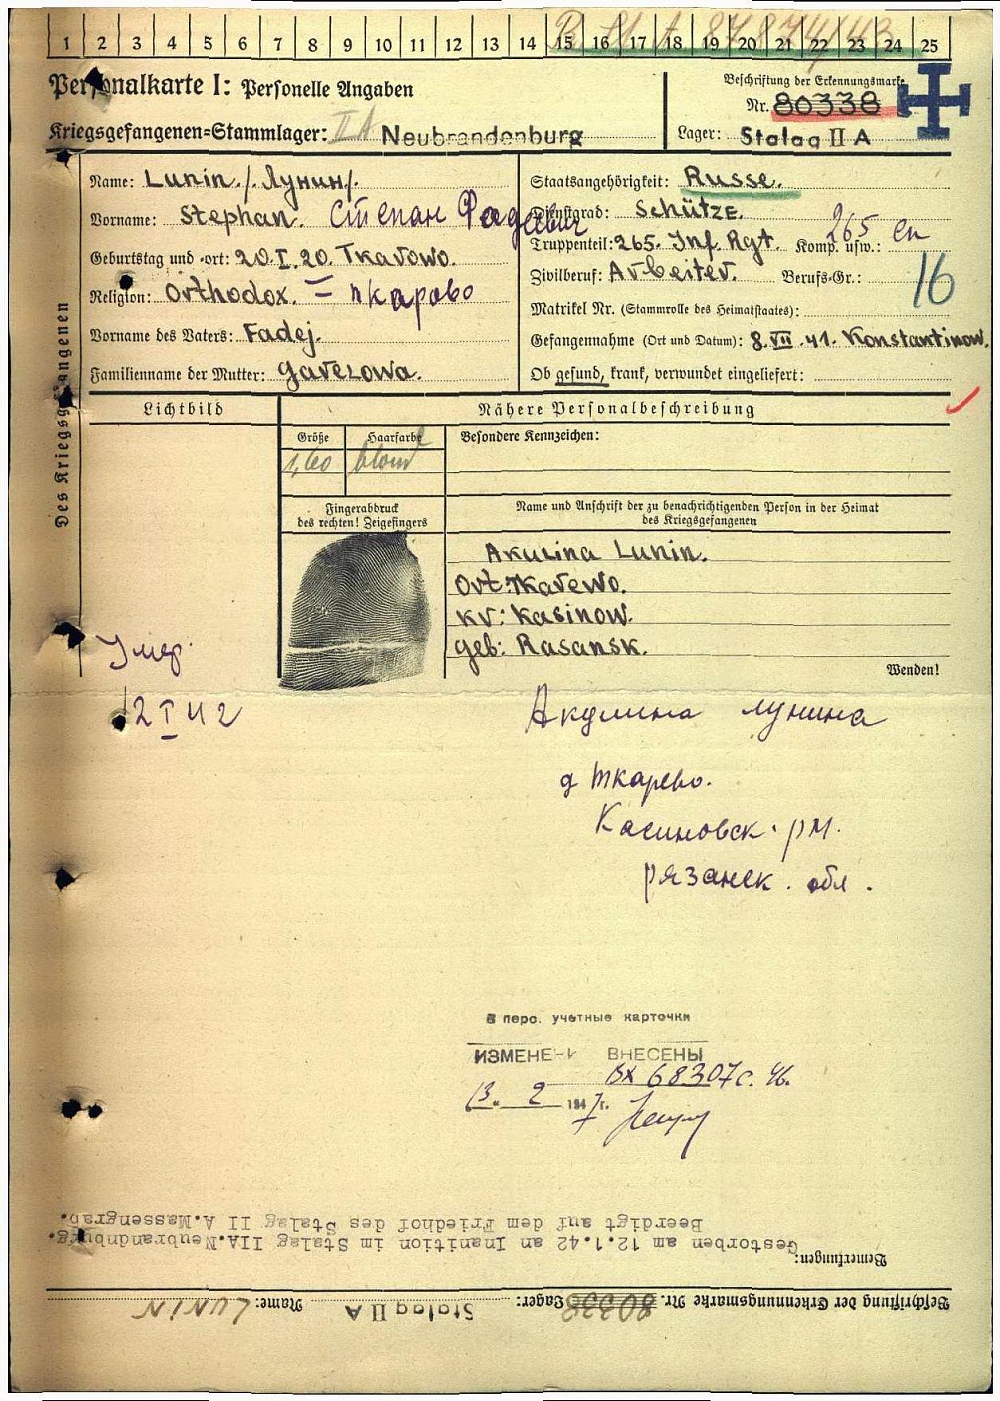 1 2 3 4 5 6 7 8 9 10 11 12 13 14 15 16 17 18 19 20 21 22 23 24 25
Personalkarte I: Personelle Angaben
Beschriftung der Erkennungsmarke
Nr. 80338
Kriegsgefangenen-Stammlager: II A Neubrandenburg
Lager: Stalag II A
Des Kriegsgefangenen
Name: Lunin./Лунин/.
Vorname: Stephan. Степан Фадеевич
Geburtstag und -ort: 20.I.20. Tkarowo.
Religion: Orthodox. — ткарово
Vorname des Vaters: Fadej.
Familienname der Mutter: Garezowa.
Staatsangehörigkeit: Russe.
Dienstgrad: Schütze.
Truppenteil: 265. Inf. Rgt. Komp. usw.: 265 сп
Zivilberuf: Arbeiter. Berufs-Gr.: 16
Matrikel Nr. (Stammrolle des Heimatstaates):
Gefangennahme (Ort und Datum): 8.VII.41. Konstantinow.
Ob gesund, krank, verwundet eingeliefert:
Lichtbild
Nähere Personalbeschreibung
Größe Haarfarbe Besondere Kennzeichen:
1,60 blond
Fingerabdruck
des rechten! Zeigefingers
Name und Anschrift der zu benachrichtigenden Person in der Heimat
des Kriegsgefangenen
Akulina Lunin.
Ort: Tkarewo.
Kr: Kasinow.
geb: Rasansk.
Wenden!
Умер.
12 I 42
Акулина лунина
д Ткарево.
Касимовск. рн.
рязанск. обл.
В перс. учетные карточки
ИЗМЕНЕН ВНЕСЕНЫ
Вх 68307с. 46.
13. 2 1947г.
Bemerkungen: Gestorben am 12.1.42 an Inanition im Stalag IIA.Neubrandnburg.
Beerdigt auf dem Friedhof des Stalag II A.Massengrab.
Beschriftung der Erkennungsmarke Nr. 80338 Lager: Stalag II A Name: LUNIN